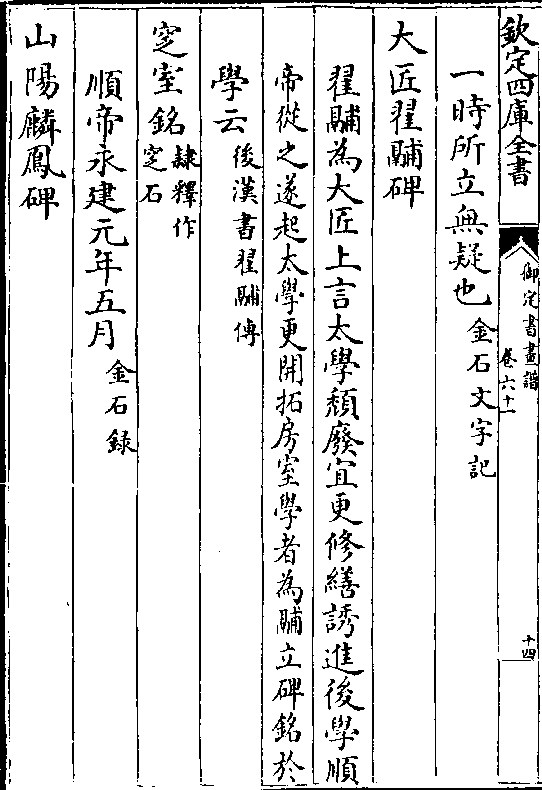 欽定四庫全書
御定書畫譜
卷六十一
十四
一時所立無疑也金石文字記
大匠翟酺碑
翟酺為大匠上言太學頹廢宜更修繕誘進後學順
帝從之遂起太學更開拓房室學者為酺立碑銘於
學云後漢書翟酺傳
窆室銘隸釋作窆石
順帝永建元年五月金石錄
山陽麟鳳碑